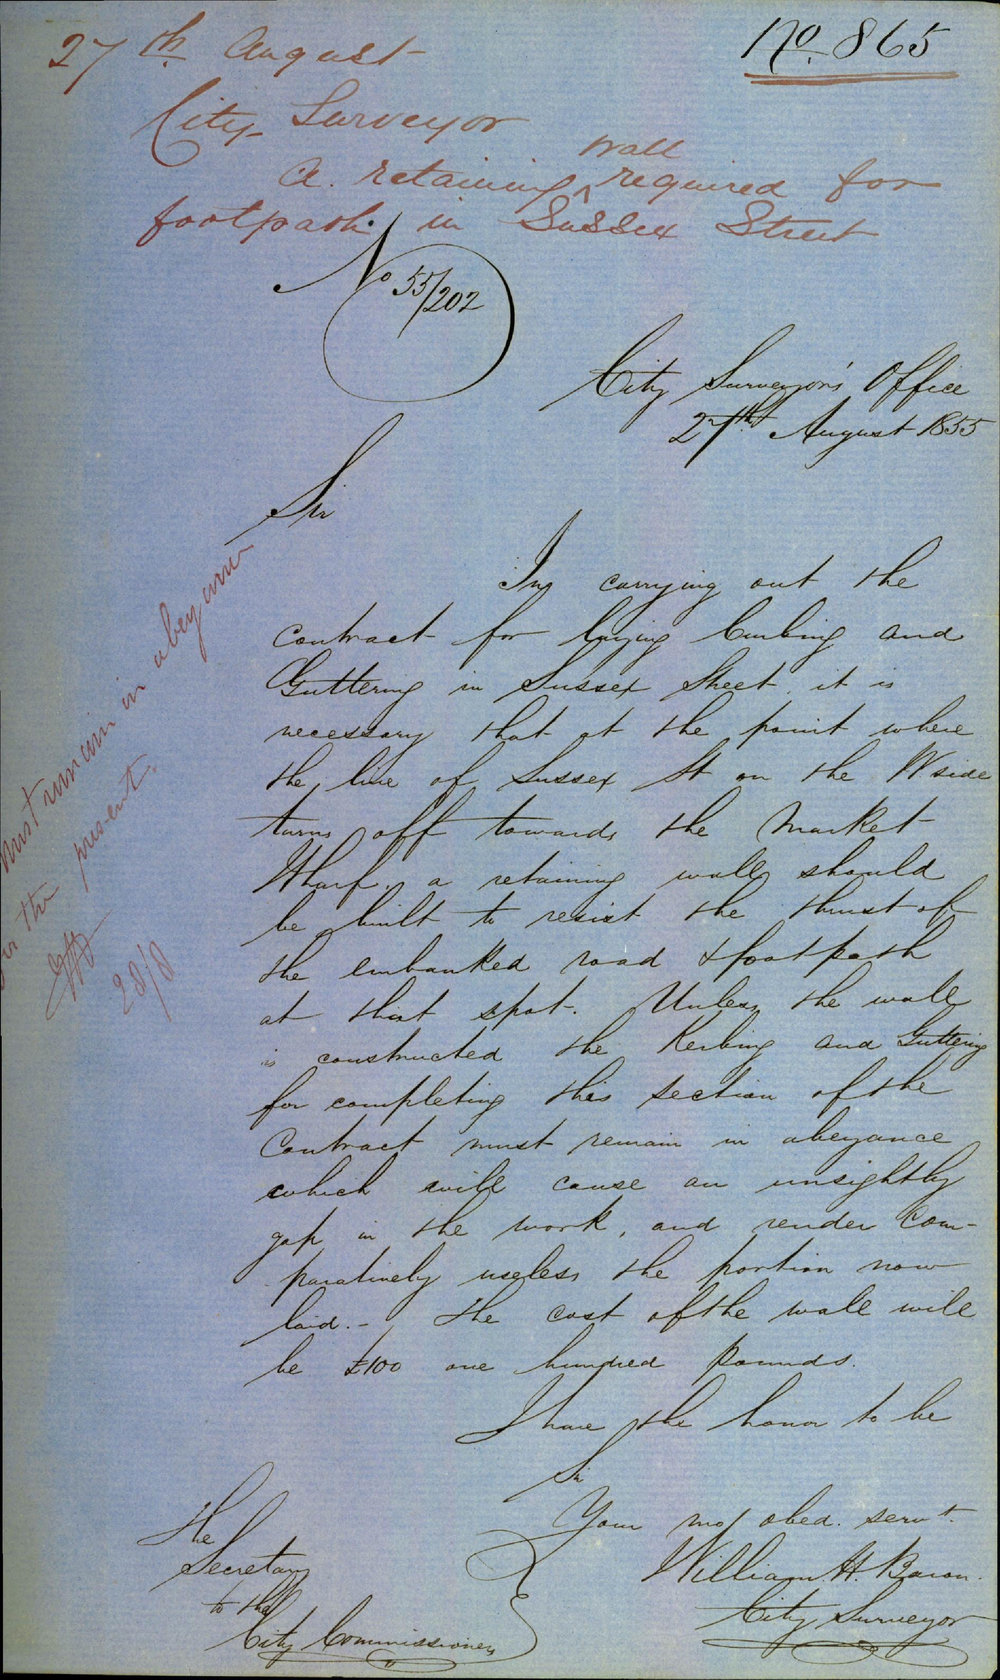 No. 865
27th August
City Surveyor
A. retaining wall required for
footpath in Sussex Street
No 55/202
City Surveyor's Office
27th August 1855
Sir
In carrying out the
Contract for laying Curbing and
Guttering in Sussex Street, it is
necessary that at the point where
the line of Sussex St on the W side
turns off towards the Market
Wharf, a retaining wall should
be built to resist the thrust of
the embanked road & footpath
at that spot. Unless the wall
is constructed the Kerbing and Guttering
for completing this section of the
Contract must remain in abeyance
which will cause an unsightly
gap in the work, and render com-
paratively useless the portion now
laid. - The cost of the wall will
be £100 one hundred pounds.
I have the honor to be
Sir
Your mo/ obed. servt.
William H. Baron.
City Surveyor
The
Secretary
to the
City Commissioners
Must remain in abeyance
for the present.
28/8